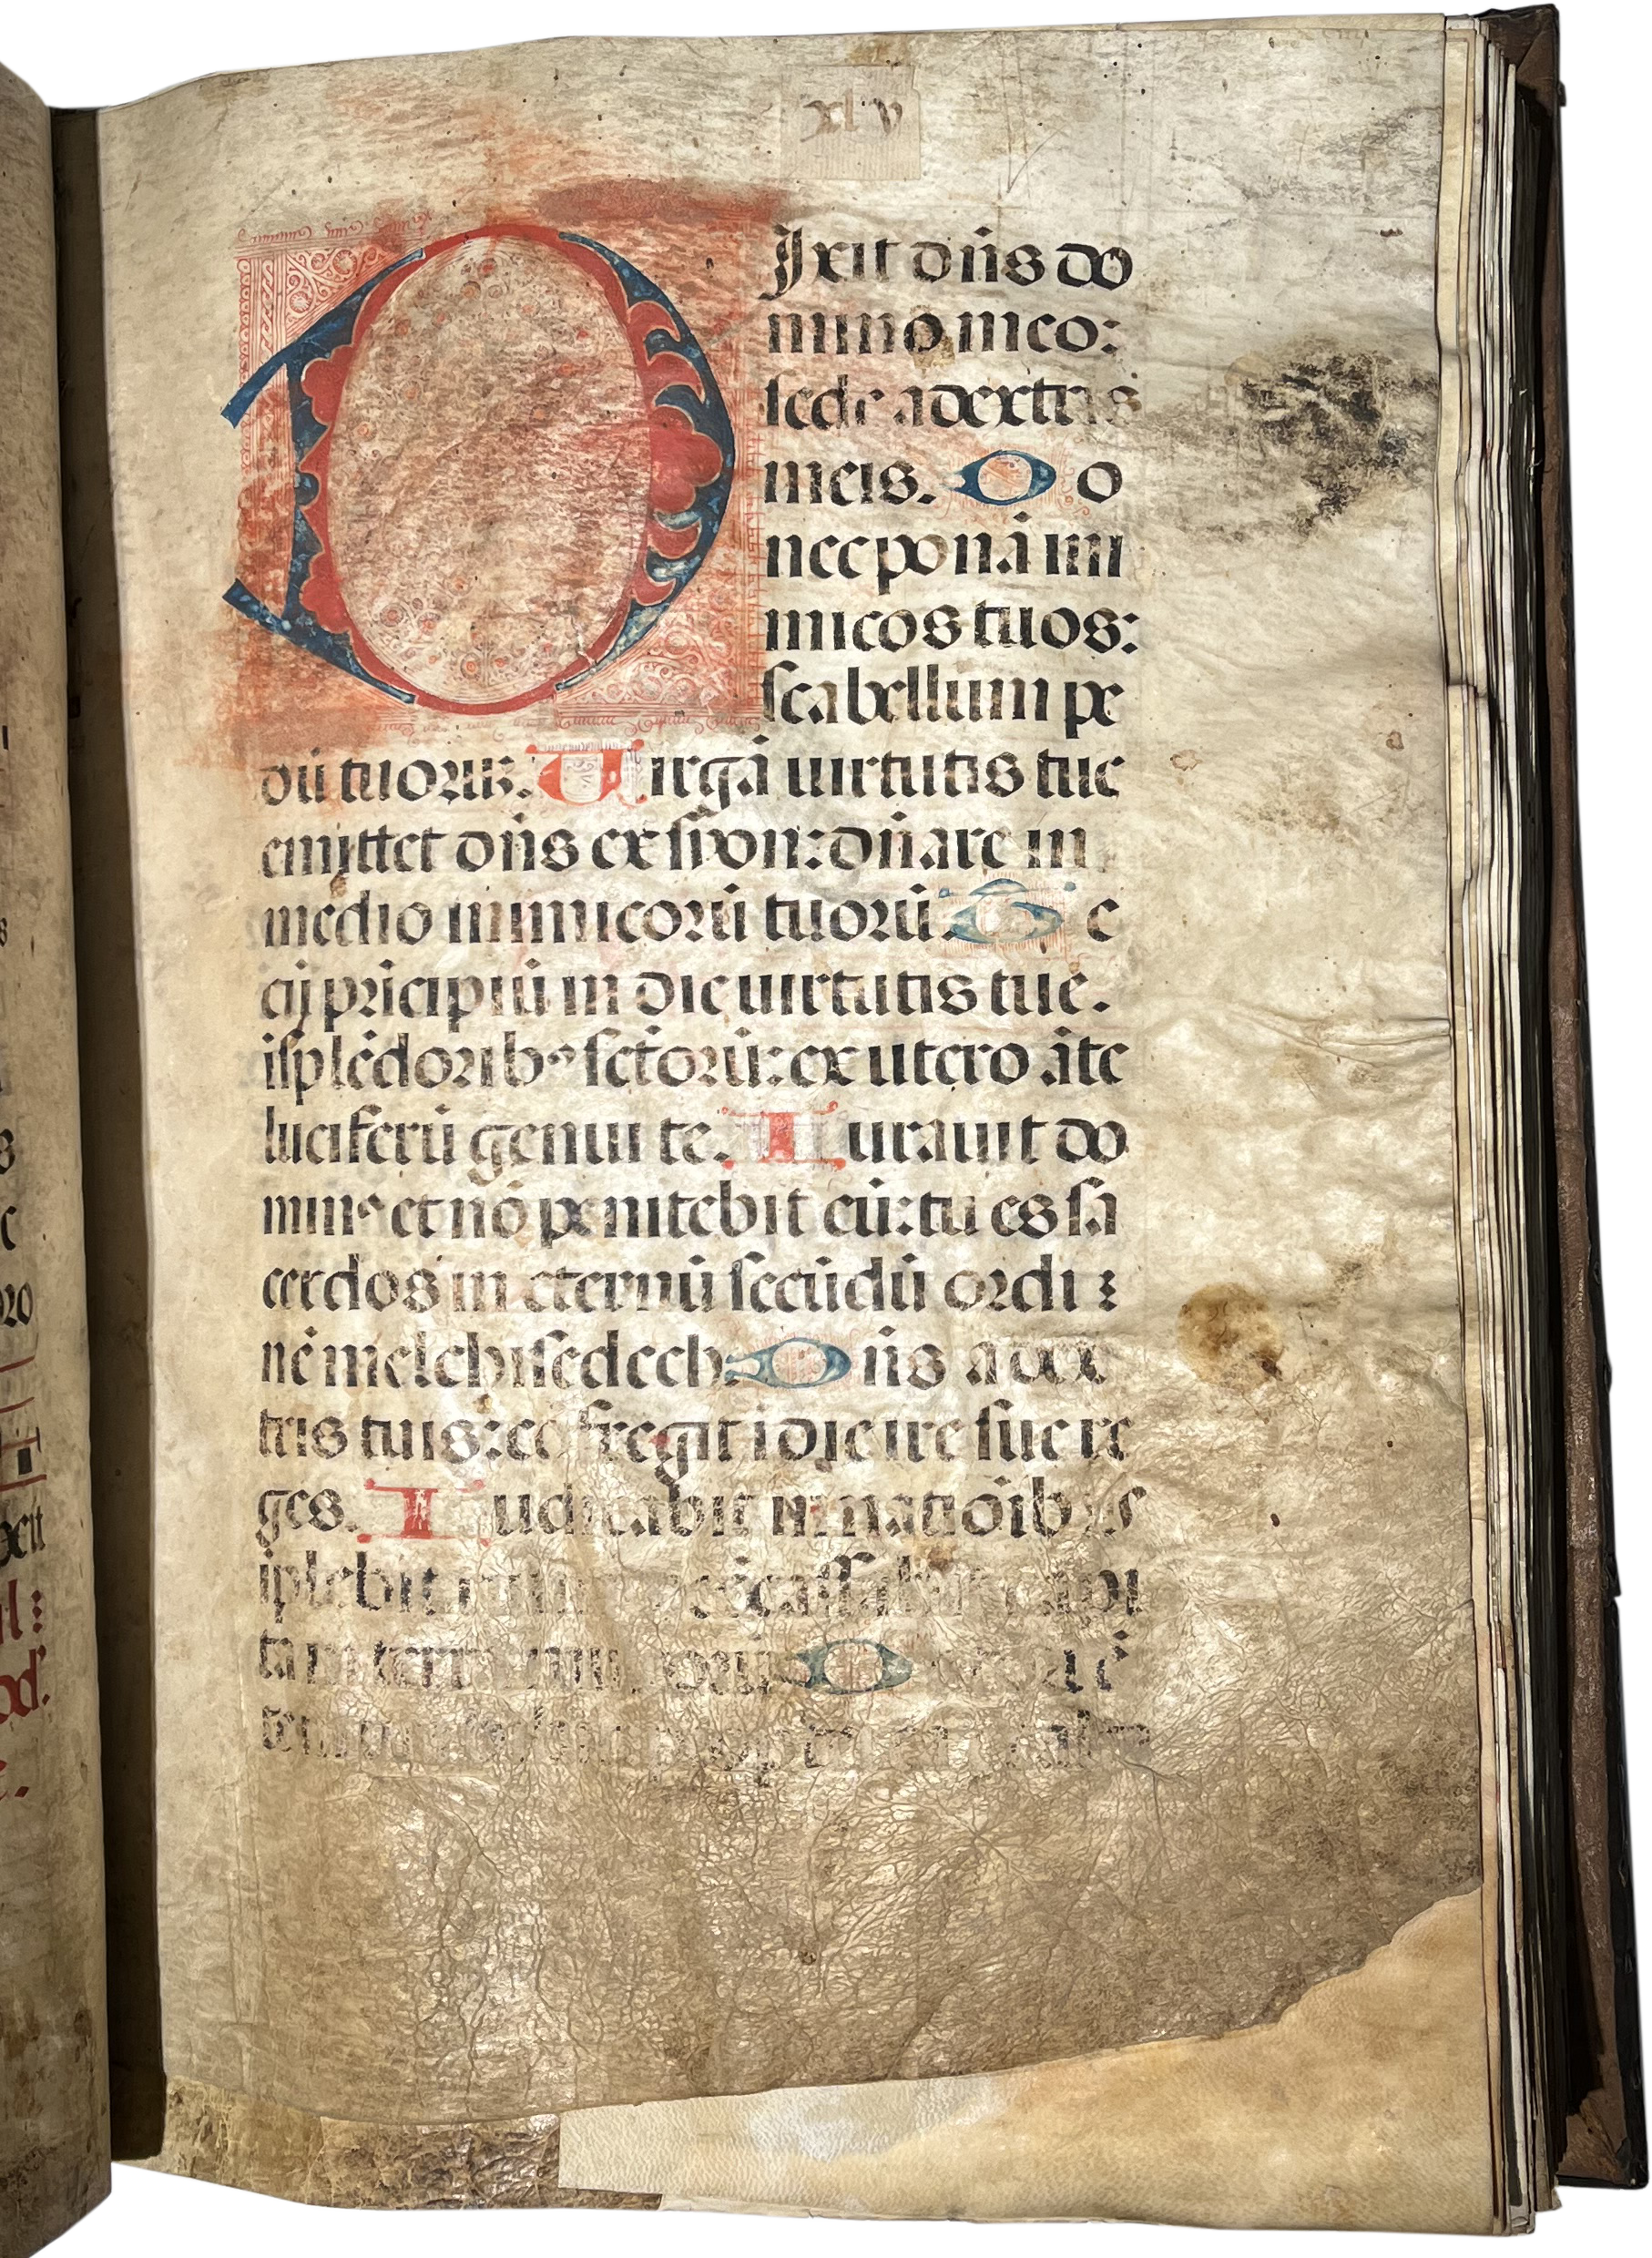 xlv
DIxit dn̄s do
mino meo:
sede a dextris
meis. Do
nec ponā ini
micos tuos:
scabellum pe
dū tuoruꝫ. Uirgā uirtutis tue
emittet dn̄s ex syon: dn̄are in
medio inimicorū tuorū. Te
cū pricipiū in die uirtutis tue.
isplēdoribꝰ sctorū: ex utero āte
luciferū genui te. Iurauit do
minꝰ et nō penitebit eū: tu es sa
cerdos in eternū secūdū ordi
nē melchisedech. Dn̄s a dex
tris tuis: cōfregit i die ire sue re
ges. Iudicabit in natiōibꝰ
iplebit cōcassabit capi
ta in terra D